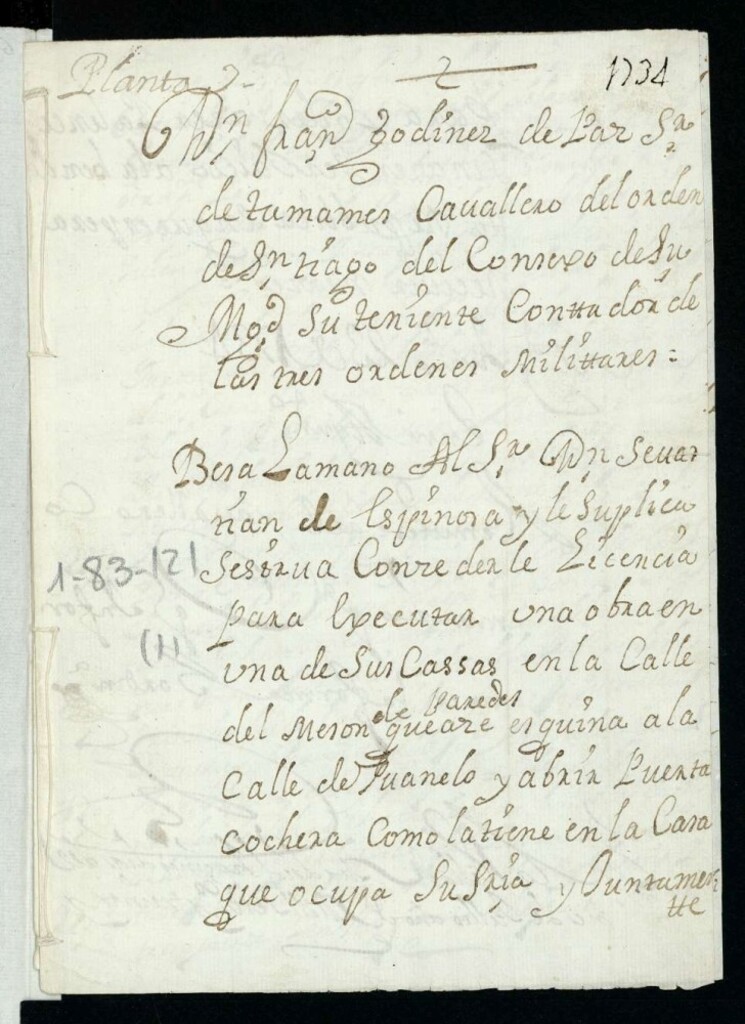 Planta 2
1734
Dn franco Godinez de Paz Sr
de tamames Cavallero del orden
de Sntiago del Consexo de Su
Magd Su teniente Conttador de
las tres ordenes Milittares =
Besa Lamano Al Sr Dn Sevas
tian de Espinosa y le Suplica
Sesirua Conzederle Licencia
1-83-121
para Executar una obra en
(1)
una de Sus Cassas en la Calle
del Meson de Paredes que aze esquina a la
Calle de Juanelo y abrir Puerta
cochera Como la tiene en la Casa
que ocupa Su Sria y Juntamen
tte